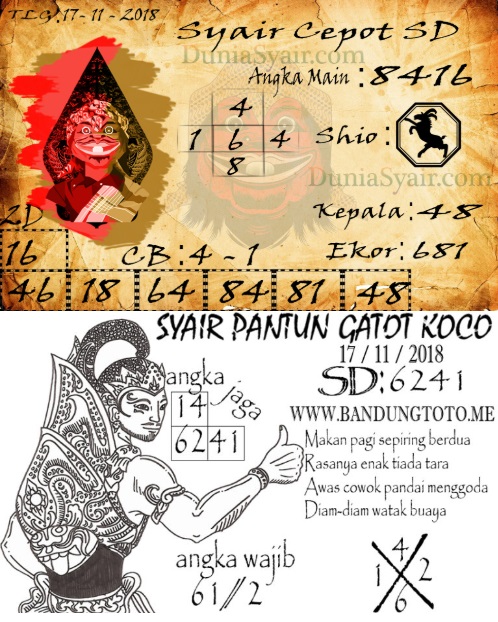 TLG:17-11-2018
Syair Cepot SD
DuniaSyair.com
Angka Main : 8416
4
1 6 4
8
Shio :
DuniaSyair.com
Kepala : 48
2D
16
CB : 4 - 1
Ekor : 681
46 18 64 84 81 48
SYAIR PANTUN GATOT KOCO
17 / 11 / 2018
SD:6241
angka
jaga
14
6241
WWW.BANDUNGTOTO.ME
Makan pagi sepiring berdua
Rasanya enak tiada tara
Awas cowok pandai menggoda
Diam-diam watak buaya
angka wajib
61//2
4
1 2
6